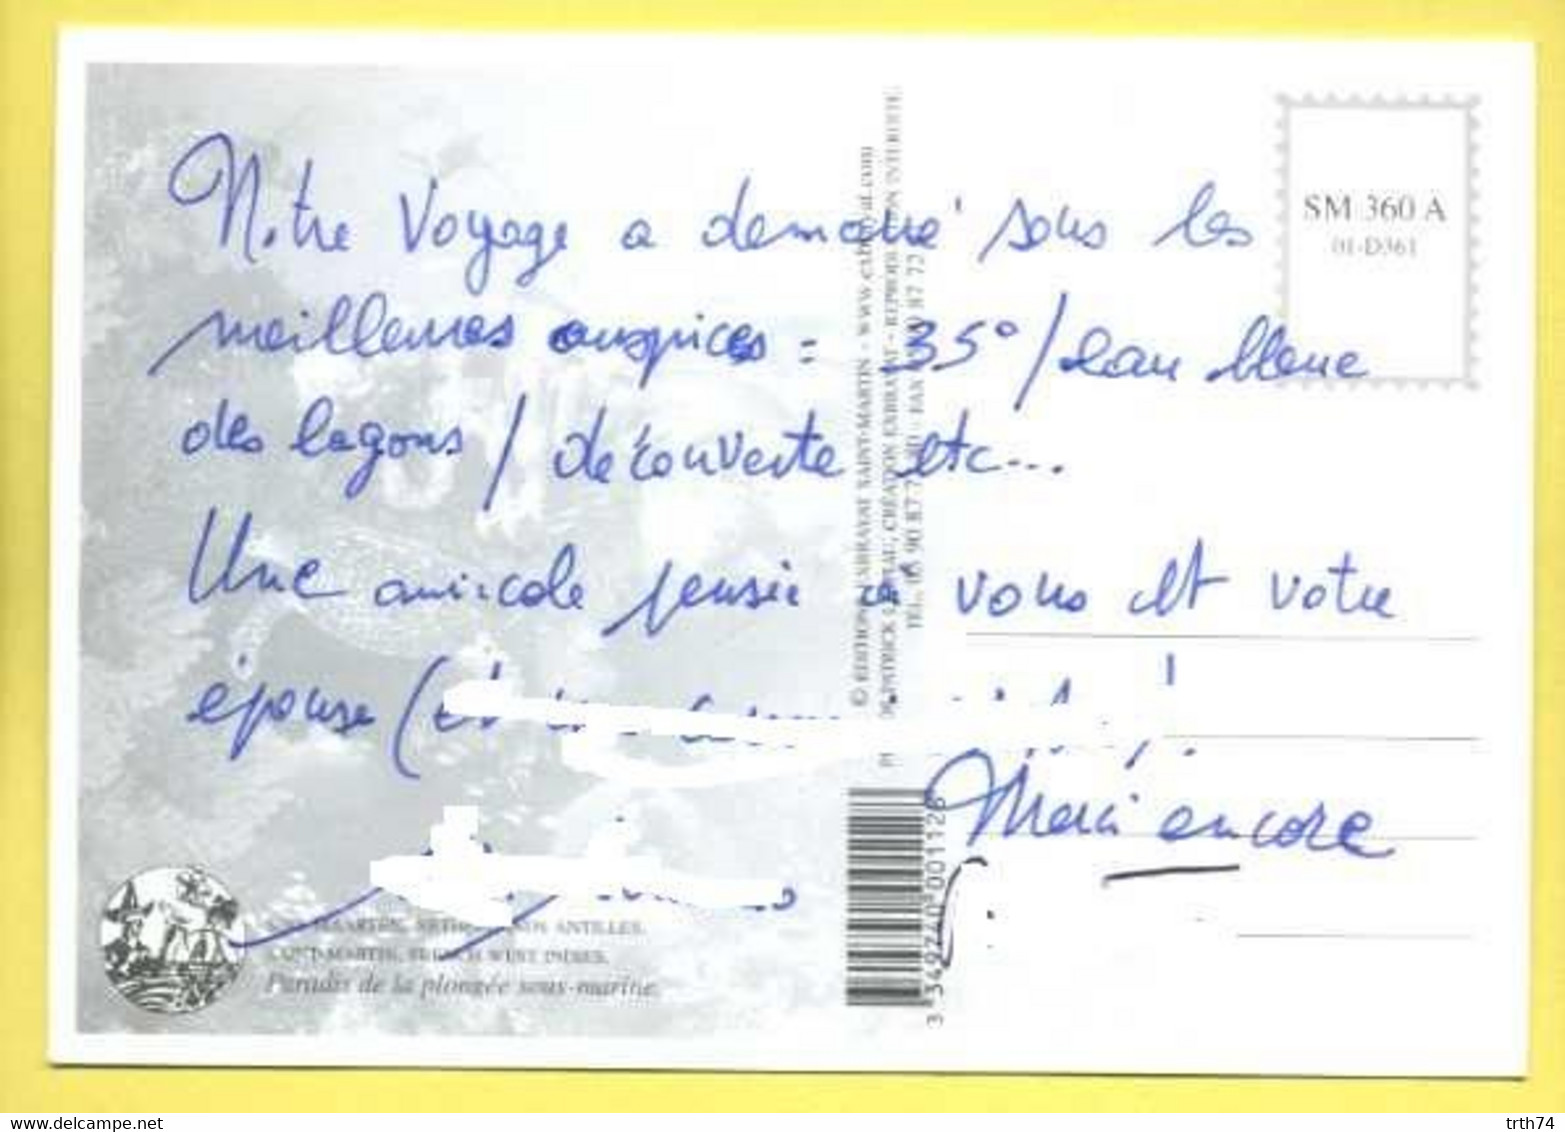 Notre voyage a démarré sous les
meilleures auspices : 35° / eau bleue
des lagons / découverte etc...
Une amicale pensée à vous et votre
épouse (et
Merci encore
SM 360 A
01-D361
© EDITIONS EXBRAYAT SAINT-MARTIN - www.exbrayat.com
CRÉATION EXBRAYAT - REPRODUCTION INTERDITE
3 349740 001126
SINT MAARTEN, NETHERLANDS ANTILLES.
SAINT-MARTIN, FRENCH WEST INDIES.
Paradis de la plongée sous-marine.
trth74